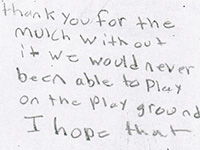 thank you for the
mulch with out
it we would never
been able to play
on the play ground
I hope that